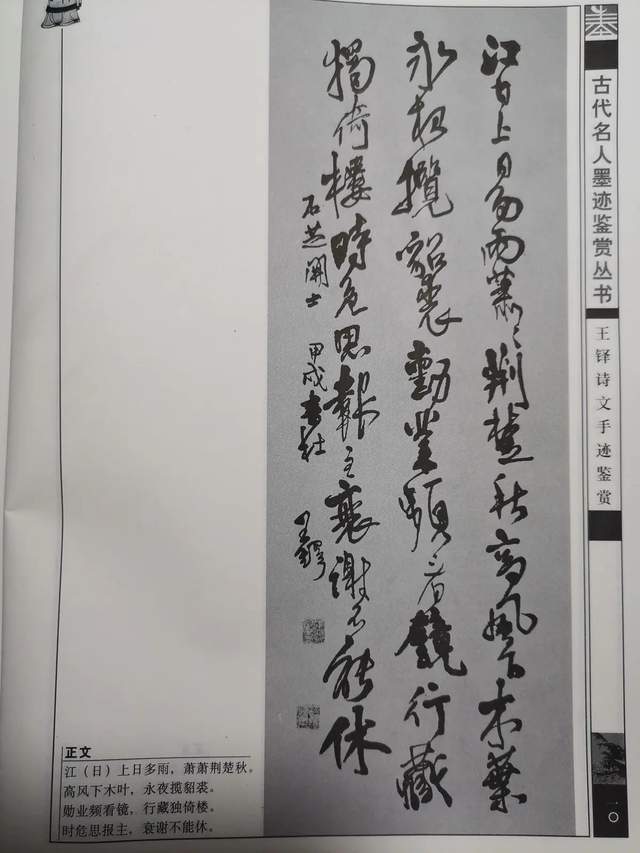 江日上日多雨萧萧荆楚秋高风下木葉
永夜攬貂裘勳業頻看鏡行藏
獨倚樓時危思報主衰謝不能休
石芝開士 甲戌書杜 王鐸
古代名人墨迹鉴赏丛书
王铎诗文手迹鉴赏
一〇
正文
江（日）上日多雨，萧萧荆楚秋。
高风下木叶，永夜揽貂裘。
勋业频看镜，行藏独倚楼。
时危思报主，衰谢不能休。